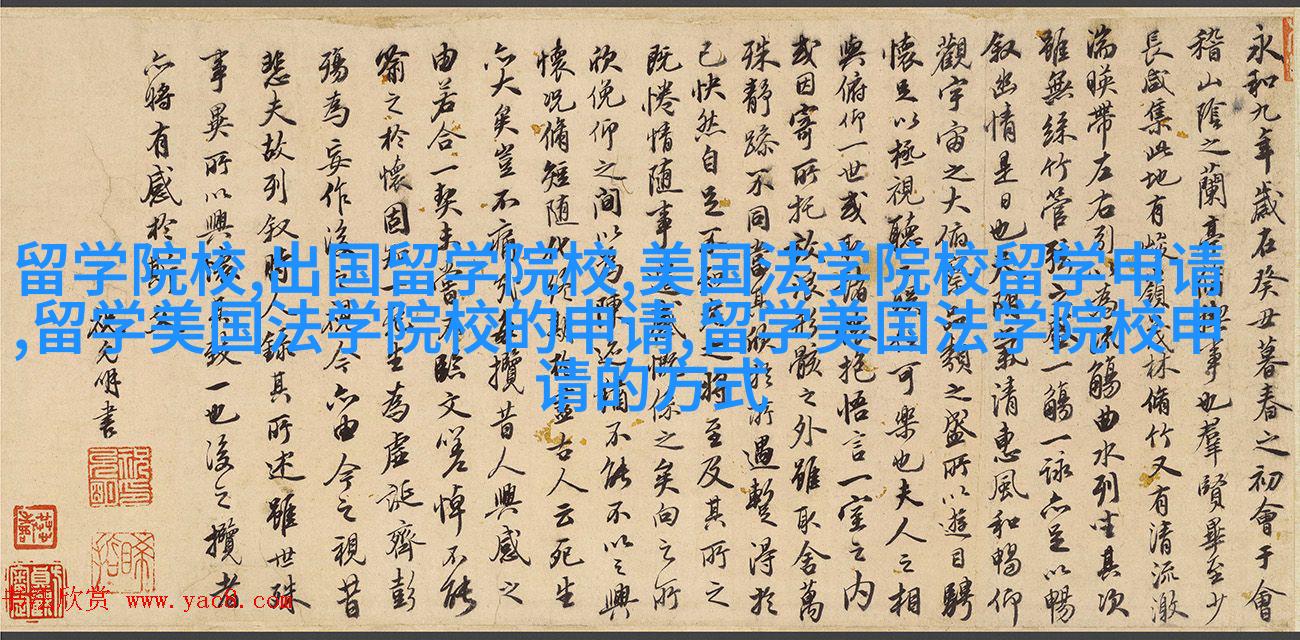 留学院校,出国留学院校,美国法学院校留学申请
,留学美国法学院校的申请,留学美国法学院校申
请的方式
永和九年歲在癸丑暮春之初會于會
稽山陰之蘭亭脩禊事也羣賢畢至少
長咸集此地有峻領茂林脩竹又有清流激
湍暎帶左右引以為流觴曲水列坐其次
雖無絲竹管弦之盛一觴一詠亦足以暢
叙幽情是日也天朗氣清惠風和暢仰
觀宇宙之大俯察品類之盛所以遊目騁
懷足以極視聽之娛信可樂也夫人之相
與俯仰一世或取諸懷抱悟言一室之內
或因寄所托放浪形骸之外雖取舍萬
殊靜躁不同當其欣於所遇暫得於
己快然自足不知老之將至及其所之
既惓情隨事遷感慨係之矣向之所
欣俛仰之間以為陳迹猶不能不以之興
懷況脩短隨化終期於盡古人云死生
亦大矣豈不痛哉每攬昔人興感之
由若合一契未嘗不臨文嗟悼不能
喻之於懷固知一死生為虛誕齊彭
殤為妄作後之視今亦由今之視昔
悲夫故列叙時人錄其所述雖世殊
事異所以興懷其致一也後之攬者
亦將有感於斯文
允明書
欣赏 www.yac8.com